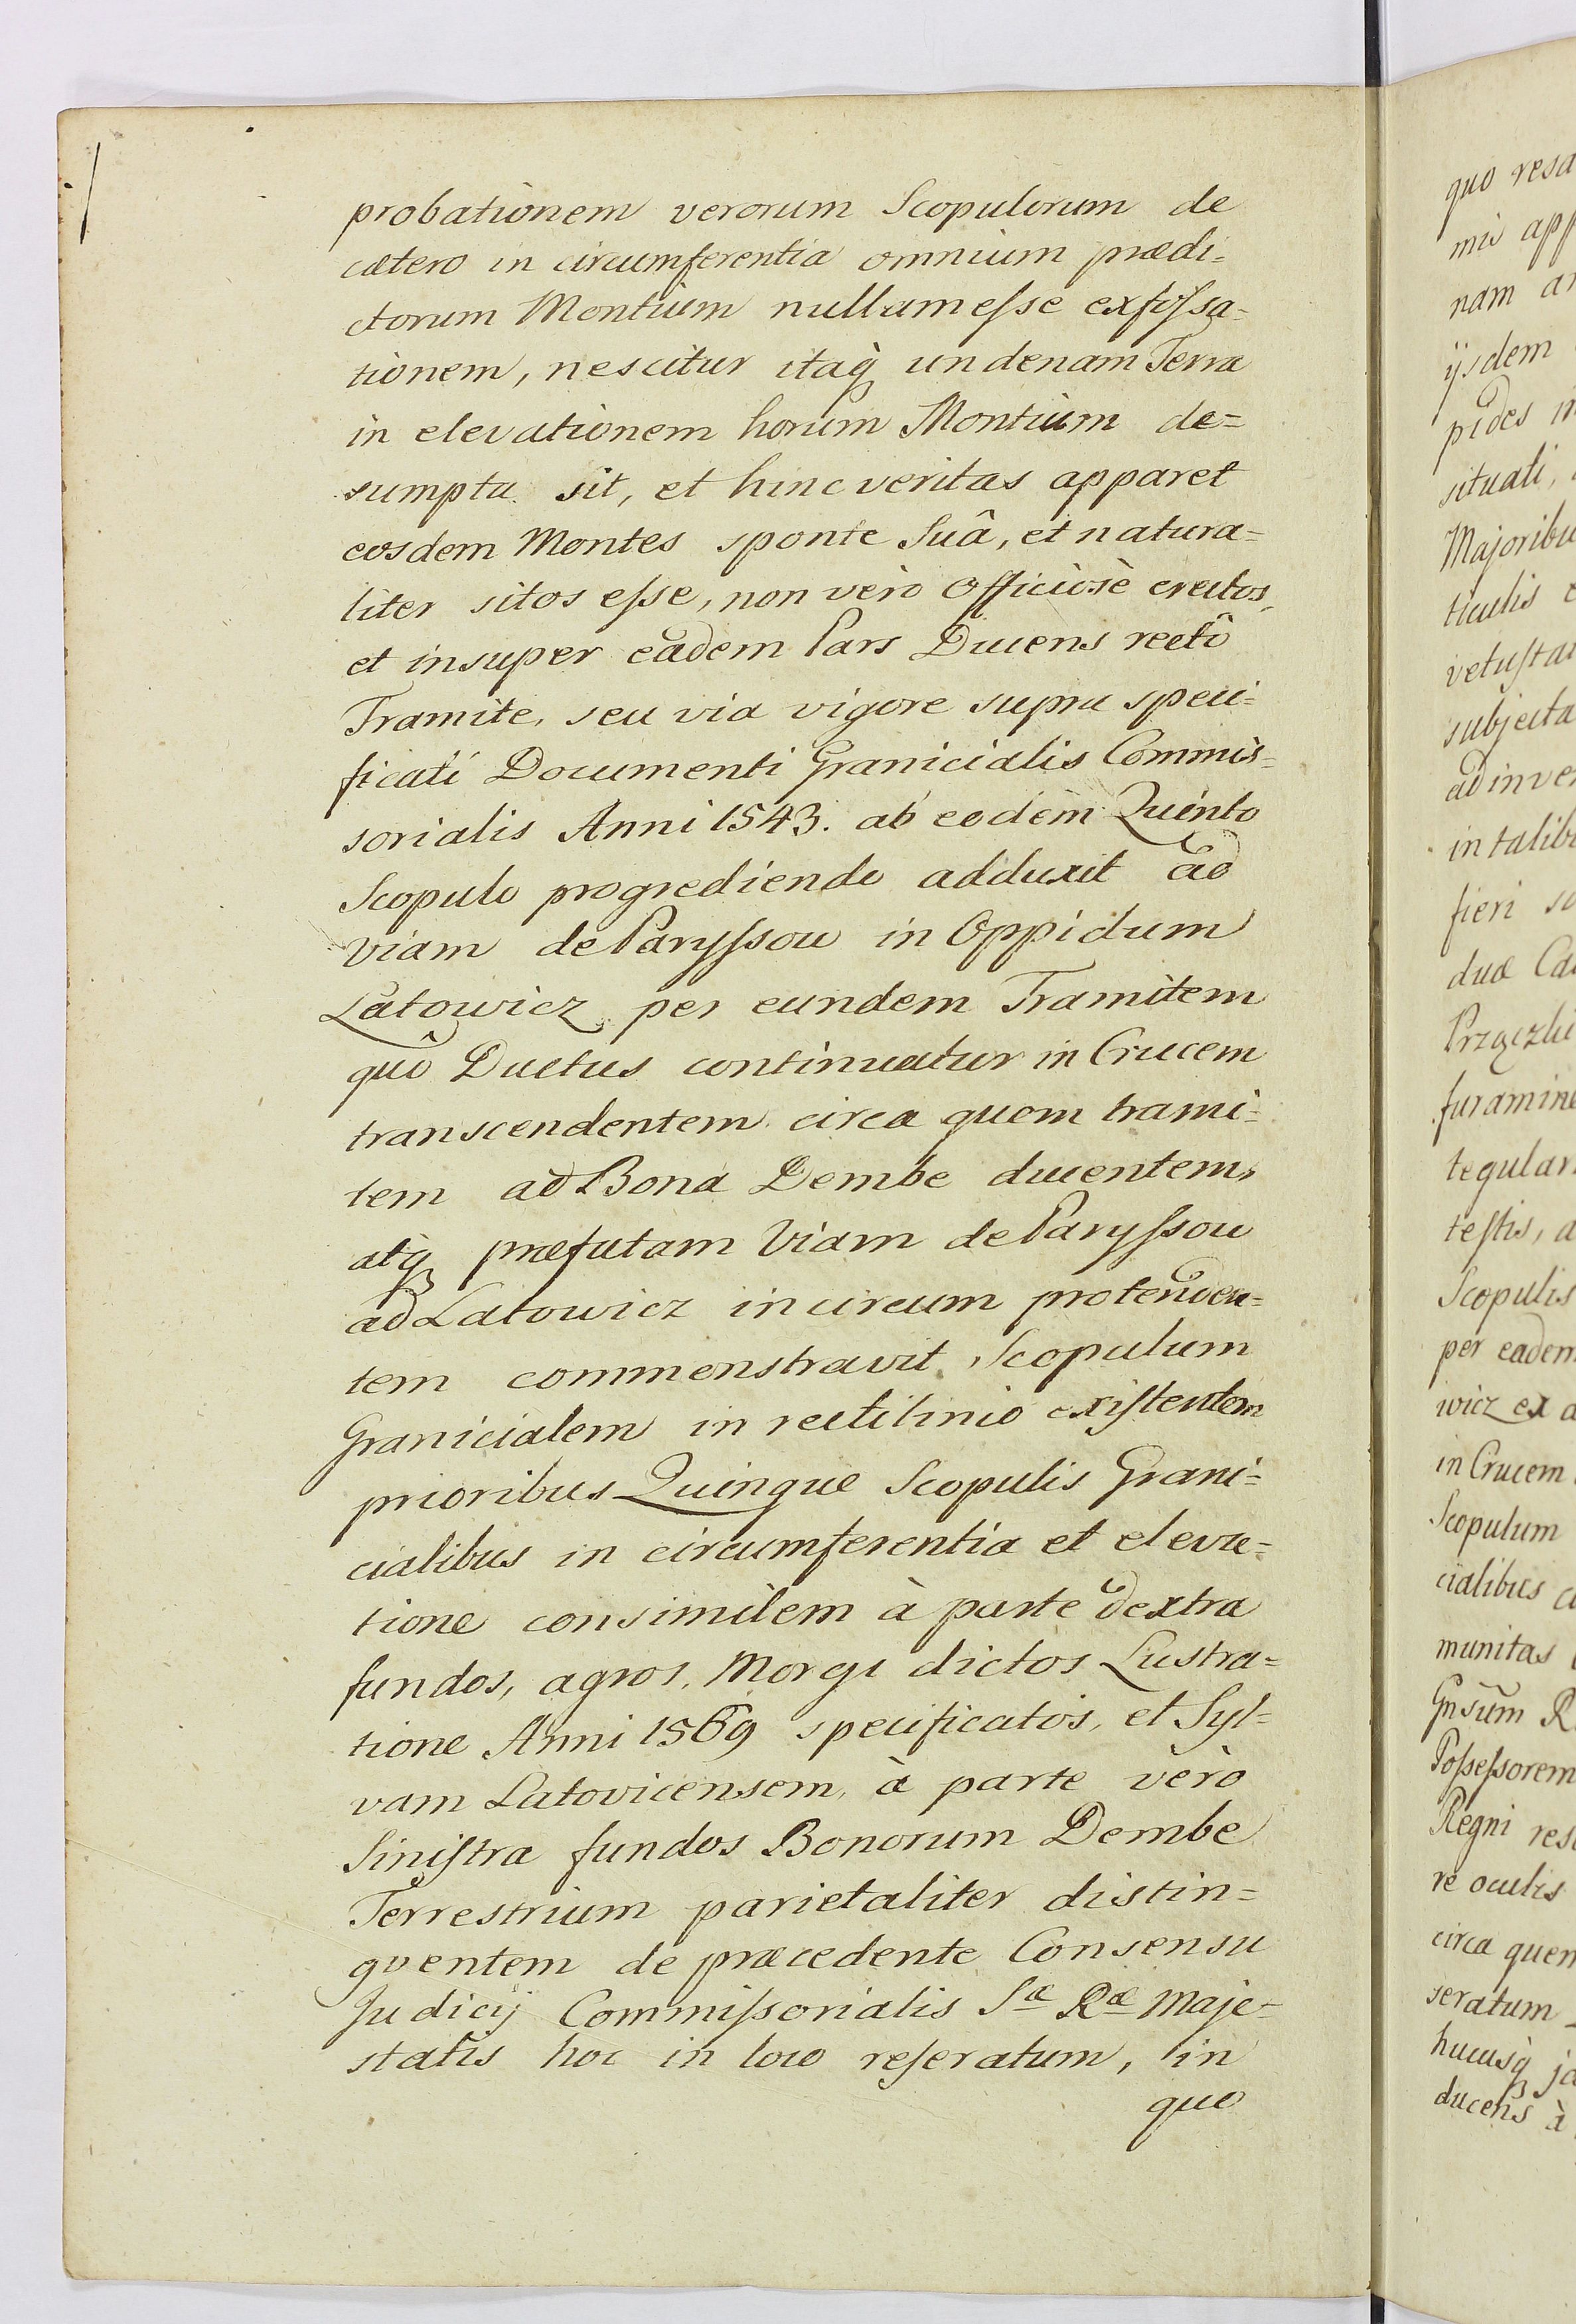 probationem verorum Scopulorum de
cætero in circumferentia omnium prædi=
ctorum Montium nullam eſse exfoſsa=
tionem, nescitur itaq́ undenam Terra
in elevationem horum Montium de=
sumpta sit, et hinc veritas apparet
eosdem Montes sponte Suâ, et natura=
liter sitos eſse, non verò Officiosè erectos,
et insuper eadem Pars Ducens rectô
Tramite, seu via vigore supra speci=
ficati Documenti Granicialis Commis=
sorialis Anni 1543. ab eodem Quinto
Scopulo progrediendo adduxit ad
Viam de Paryſsow in Oppidum
Latowicz per eundem Tramitem
quô Ductus continuatur in Crucem
transcendentem circa quem trami=
tem ad Bona Dembe ducentem,
atq̃ præfatam Viam de Paryſsow
ad Latowicz in circum protenden=
tem commonstravit Scopulum
Granicialem in rectilinio exiſtentem
prioribus Quinque Scopulis Grani=
cialibus in circumferentia et eleva=
tione consimilem à parte dextra
fundos, agros, Morgi dictos Lustra=
tione Anni 1569 specificatos, et Syl=
vam Latovicensem, à parte verò
Siniſtra fundos Bonorum Dembe
Terrestrium parietaliter distin=
guentem de præcedente Consensu
Judicij Commiſsorialis Sæ Ræ Maje=
statis hoc in loco reſeratum, in
quo
quo resa
mis app
nam ar
ijsdem
pides in
situati,
Majoribu
ticulis e
vetuſtat
subjecta
ad inven
in talib
fieri so
duæ Ca
Przączki
furamine
tegular
teſtis, a
Scopulis
per eadem
wicz ex a
in Crucem
Scopulum
cialibus c
munitas
Gnsum R
Poſseſsorem
Regni res
re oculis
circa quem
seratum
hucusq́ ja
ducens à